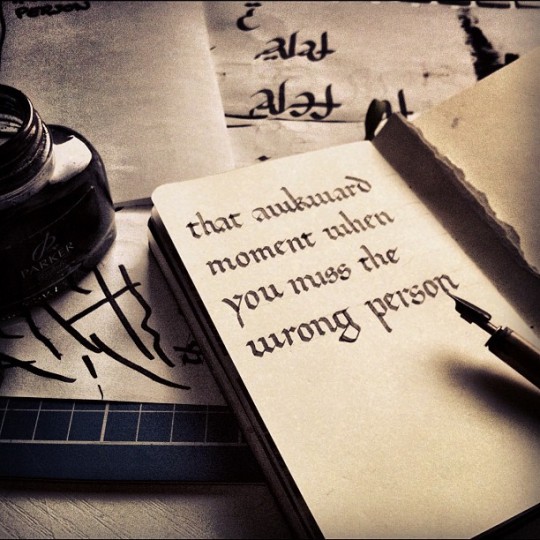 PERSON
PARKER
that awkward
moment when
you miss the
wrong person